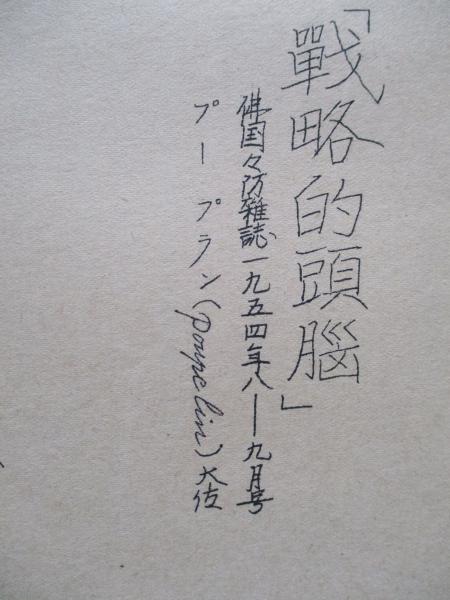 「戰略的頭腦」
佛国々防雑誌一九五四年八―九月号
プープラン(Poupelin)大佐